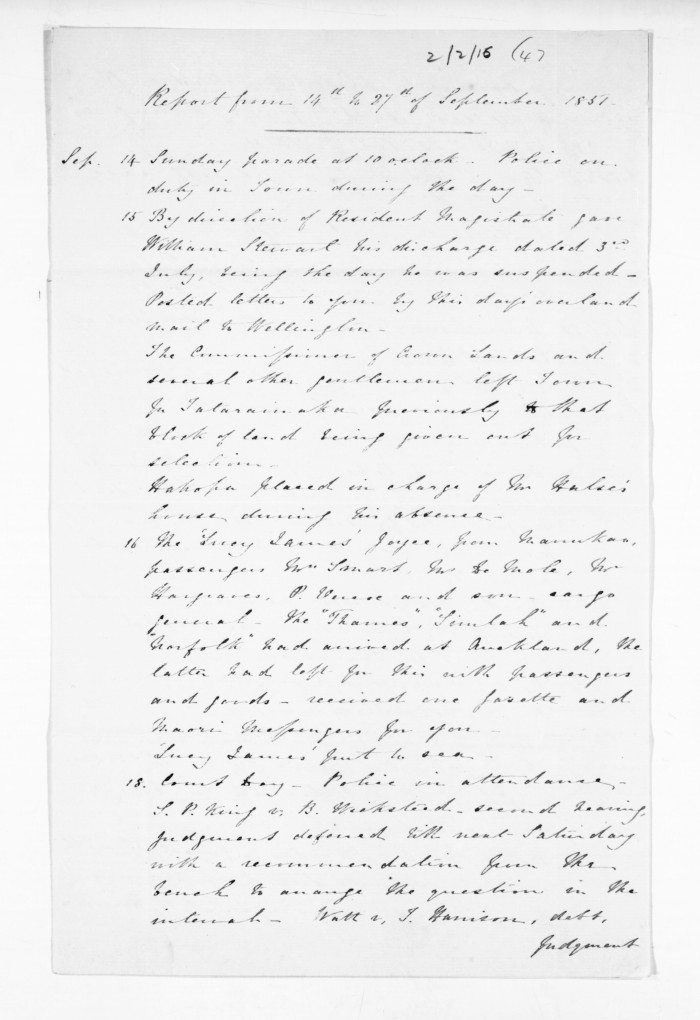 2/2/15 (4)
Report from 14th to 27th of September 1851
Sep. 14 Sunday parade at 10 o'clock - Police on
duty in Town during the day -
15 By direction of Resident Magistrate gave
William Stewart his discharge dated 3rd
July, being the day he was suspended -
Posted letters to you by this day's overland
mail to Wellington -
The Commissioner of Crown Lands and
several other gentlemen left Town
for Tataraimaka previously to that
block of land being given out for
selection -
Hakopa placed in charge of Mr Halse's
house during his absence -
16 The "Lucy James" Joyce, from Manukau,
passengers Mrs Smart, Mr De Mole, Mr
Hargraves, P. and son - cargo
general - The "Thames", "Simlah" and
"Norfolk" had arrived at Auckland, the
latter had left for this with passengers
and goods - received one Gazette and
Maori Messengers for you -
"Lucy James" put to sea -
18. Court day - Police in attendance -
S. P. King v. B. Wicksteed - second hearing,
judgment deferred till next Saturday
with a recommendation from the
bench to arrange the question in the
interval - Watt v. T. Harrison, debt,
Judgment